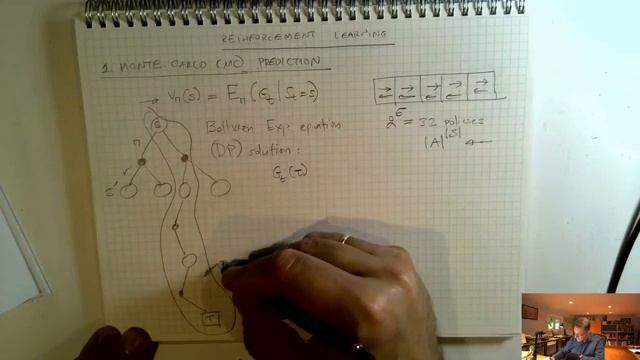 REINFORCEMENT LEARNING
1. MONTE-CARLO (MC) PREDICTION
→ Vπ(s) = Eπ(Gt | St=s)
Bellman Exp. equation
(DP) solution:
Gt(τ)
2^5 = 32 policies
|A|^|S| ←
S
π
r
s'
T